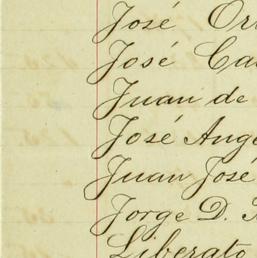 José
José
Juan de
José
Juan José
Jorge D.
Liberato